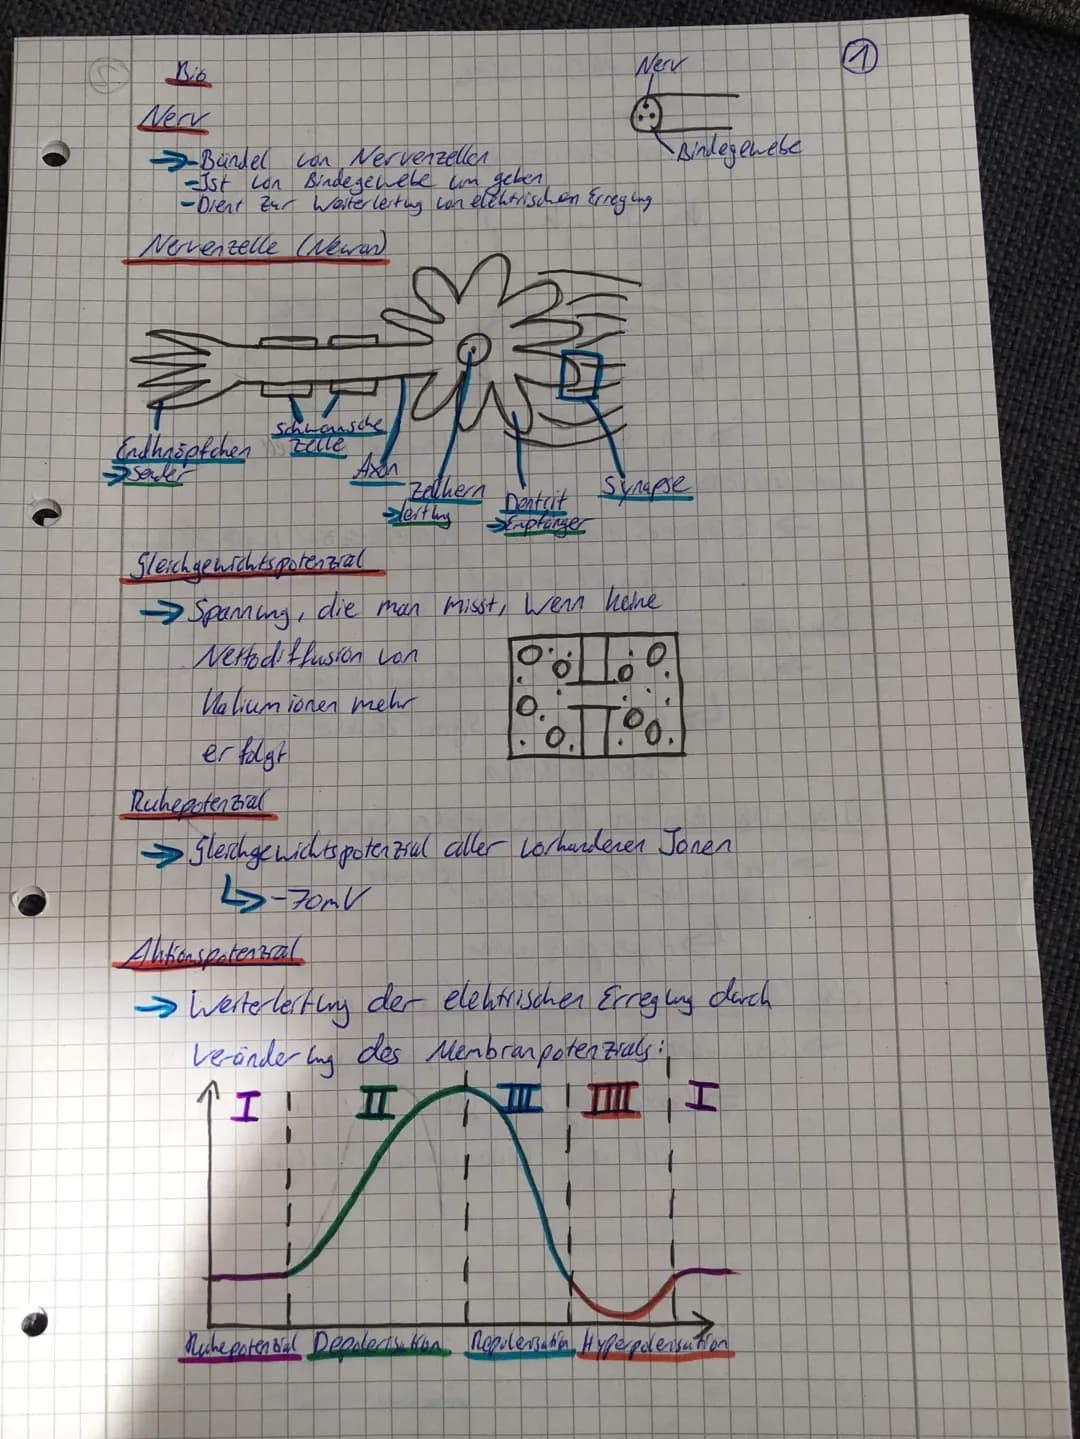 1
Bio
Nerv
Nerv
Bindegewebe
→ - Bündel von Nervenzellen
- Ist von Bindegewebe um geben
- Dient zur Weiterleitung von elektrischen Erregung
Nervenzelle (Neuron)
Endknöpfchen
→ Sender
Schwannsche
Zelle
Axon
Zellkern
→ leitung
Dentrit
→ Empfänger
Synapse
Gleichgewichtspotenzial
→ Spannung, die man misst, wenn keine
Nettodiffusion von
Kaliumionen mehr
erfolgt
Ruhepotenzial
→ Gleichgewichtspotenzial aller vorhandenen Ionen
↳ -70mV
Aktionspotenzial
→ Weiterleitung der elektrischen Erregung durch
Veränderung des Membranpotenzials:
I II III IIII I
Ruhepotenzial Depolarisation Repolarisation Hyperpolarisation